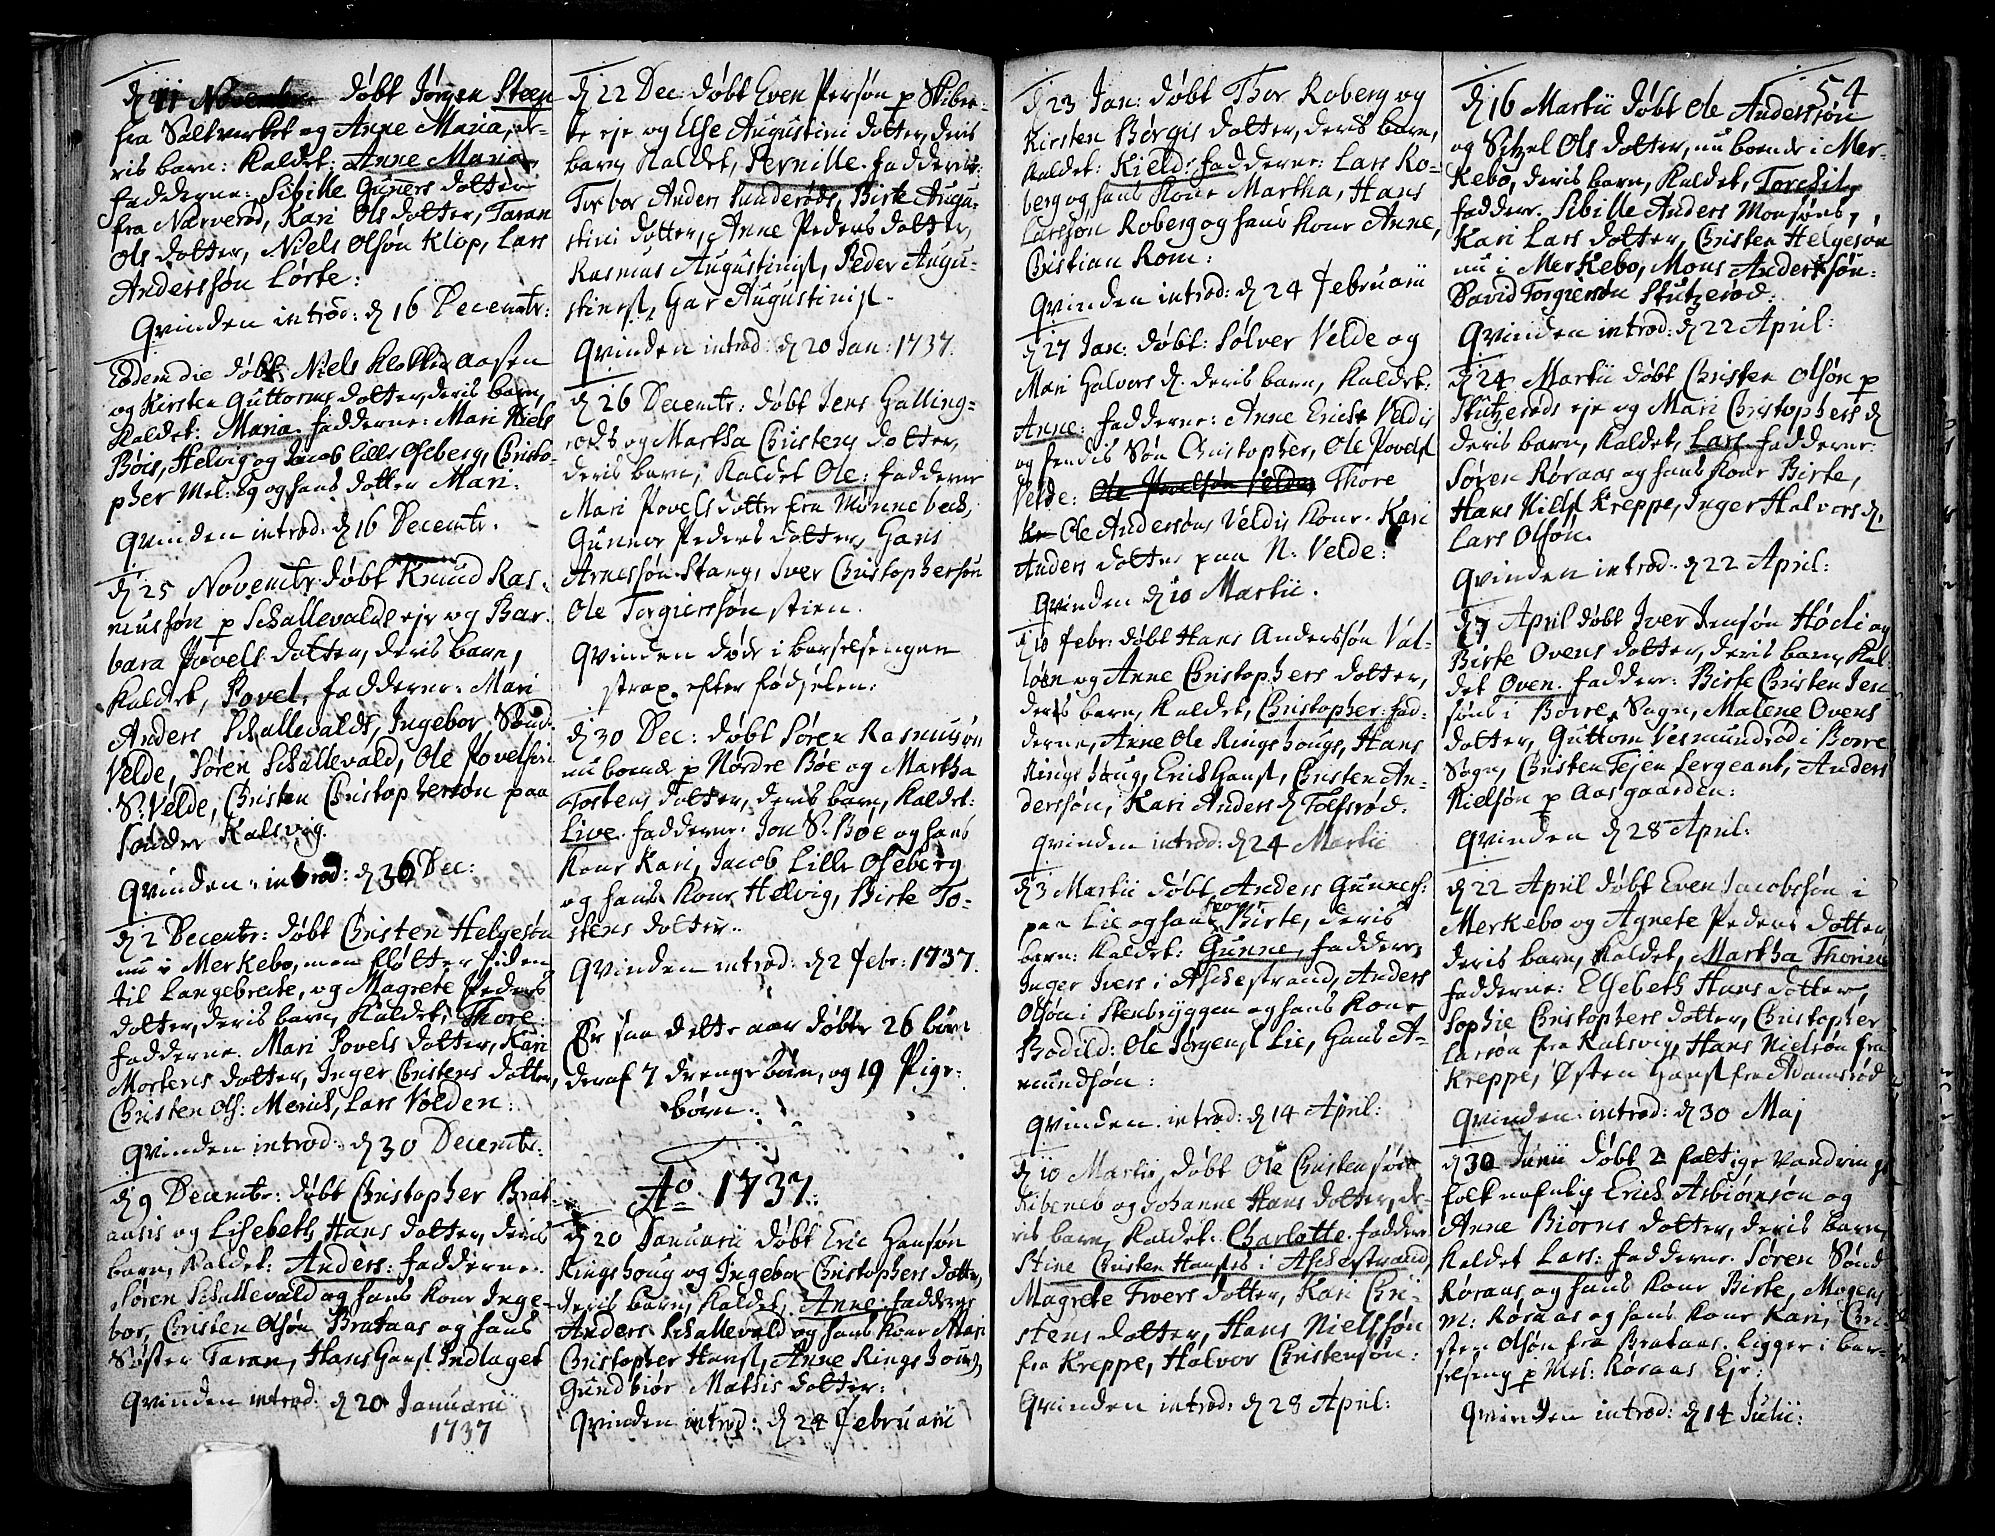 d 11 Novembr døbt Jørgen Steen
fra Saltverket og Anne Maria, de-
ris barn: Kaldet: Anne Maria,
fadderne: Sibille Gunners dotter
fra Nærverød, Kari Ols dotter, Taran
Ols dotter, Niels Olsøn Klop, Lars
Anderssøn Lørke:
Qvinden introd: d 16 Decembr:
Eodem die døbt Niels Klokker aasen
og Kirsten Guttorms dotter, deris barn,
Kaldet: Maria. fadderne: Mari Niels
Bøis, Helvig og Jacob lille Oseberg, Christo-
pher Mel: og hans dotter Mari.
Qvinden introd: d 16 Decembr.
d 25 Novembr døbt Knud Ras-
mussøn p Schallevalds eje og Bar-
bara Povels dotter, deris barn,
Kaldet, Povel, fadderne: Mari
Anders Schallevalds, Ingebor Sønd.
Velde, Søren Schallevald, Ole Povelsøn
S: Velde, Christen Christophersøn paa
Sønder Kalsvig.
Qvinden introd: d 30 Dec:
d 2 Decembr: døbt Christen Helgesøn
nu i Merkebo, men fløtter siden
til Langebreke, og Magrete Peders
dotter, deris barn, Kaldet, Thore:
fadderne. Mari Povels dotter, Kari
Mortens dotter, Inger Christens dotter,
Christen Ols: Merick, Lars Volden:
Qvinden introd: d 30 Decembr:
d 9 Decembr: døbt Christopher Brat-
aasis og Lisebeth Hans dotter, deris
barn, Kaldet: Anders: fadderne.
Søren Schallevald og hans Kone Inge-
bor, Christen Olsøn Brataas og hans
Søster Taran, Hans Hansl Indlaget
Qvinden introd: d 20 Januarii
1737
d 22 Dec: døbt Even Persøn p Skiber-
ke eje og Else Augustini dotter, deris
barn, Kaldet, Pernille. fadderne:
Torbor Anders Sunderøds, Birte Augu-
stini dotter, Anne Peders dotter,
Rasmus Augustinisl, Peder Augu-
stinisl, Gar Augustinisl.
Qvinden introd: d 20 Jan: 1737.
d 26 Decembr: døbt Jens Galling-
røds og Martha Christens dotter,
deris barn, Kaldet Ole: fadderne
Mari Povels dotter fra Mønnebeck,
Gunner Peders dotter, Hans
Arnessøn Stang, Iver Christophersøn
Ole Torgierssøn stien.
Qvinden døde i barselsengen
strax efter fødselen:
d 30 Dec: døbt Søren Rasmussøn
nu boende p Nordre Bøe og Martha
Tostens dotter, deris barn, Kaldet:
Live. fadderne. Jon S: Bøe og hans
Kone Kari, Jacob Lille Oseberg
og hans Kone Helvig, Birte To-
stens dotter.
Qvinden introd: d 2 Febr: 1737.
Er saa dette aar døbte 26 børn
deraf 7 drenge børn, og 19 Pige-
børn.
Ao 1737:
d 20 Januarii døbt Eric Hansøn
Ringshoug og Ingebor Christophers dotter,
deris barn, Kaldet, Anne: fadderne
Anders Schallevald og hans Kone Mari
Christopher Hansl, Anne Ringshougs,
Gundbiør Mathis dotter:
Qvinden introd: d 24 Februarii
54
d 23 Jan: døbt Thor Roberg og
Kirsten Børgis dotter, deris barn,
Kaldet: Kield: fadderne: Lars Ro-
berg og hans Kone Martha, Hans
Larssøn Roberg og hans Kone Anne,
Christian Rom:
Qvinden introd: d 24 Februarii
d 27 Jan: døbt: Sølver Velde og
Mari Halvors d. deris barn, Kaldet:
Anne: fadderne: Anne Erichs Veldis
og hendis Søn Christopher, Ole Povelsl
Velde: Ole Povelsøn Velde, Thore
Ole Andersøns Veldis Kone. Kari
Anders dotter paa N: Velde:
Qvinden d 10 Martii.
d 10 Febr: døbt Hans Anderssøn Val-
løen og Anne Christophers dotter,
deris barn, Kaldet, Christopher: fad-
derne, Anne Ole Ringshougs, Hans
Ringshoug, Erich Hansl, Christen An-
derssøn, Kari Anders d Tolfsrød.
Qvinden introd: d 24 Martii
d 3 Martii døbt Anders Gunnersl:
paa Lie og hans Kone Birte, deris
barn: Kaldet: Gunne, fadderne,
Inger Ivers i Aschestrand, Anders
Olsøn i Stenbryggen og hans Kone
Bodild: Ole Jørgensl Lie, Hans A-
mundsøn:
Qvinden introd: d 14 April:
d 10 Martii døbt Ole Christensøn
Ribeneb og Johanne Hans dotter, de-
ris barn, Kaldet: Charlotte. fadderne
Stine Christen Hansis i Aschestrand,
Magrete Ivers dotter, Kari Chri-
stens dotter, Hans Nielssøn
fra Kreppe, Halvor Christensøn:
Qvinden introd: d 28 April:
d 16 Martii døbt Ole Anderssøn
og Sitzel Ols dotter, nu boende i Mer-
kebo, deris barn, Kaldet, Torchil,
fadderne. Sibille Anders Monsøns,
Kari Lars dotter, Christen Helgesøn
nu i Merkebo, Mons Anderssøn:
David Torgiersøn Stutzerød:
Qvinden introd: d 22 April:
d 24 Martii døbt Christen Olsøn p
Stutzerøds eje og Mari Christophers d
deris barn, Kaldet, Lars. fadderne:
Søren Røraas og hans Kone Birte,
Hans Nillsl Kreppe, Inger Halvors d,
Lars Olsøn.
Qvinden introd: d 22 April:
d 7 April døbt Iver Jensøn Høcli og
Birte Ovens dotter, deris barn, Kal-
det Oven. fadder: Birte Christen Jen-
søns i Borre Sogn, Malene Ovens
dotter, Guttorm Vesmundrød i Borre
Sogn, Christen Tejen Sergeant, Anders
Nielsøn p Aasgaarden:
Qvinden d 28 April:
d 22 April døbt Even Jacobssøn i
Merkebo og Agnete Peders dotter,
deris barn, Kaldet, Martha Thorine
fadderne: Elsebeth Hans dotter,
Sophie Christophers dotter, Christopher
Larsøn fra Kalsvig, Hans Nielsøn fra
Kreppe, Østen Hansl fra Adamsrød
Qvinden introd: d 30 Maj
d 30 Junii døbt 2 fattige Vandrings
folk nafnlig Erich Asbiørnsøn og
Anne Biørns dotter, deris barn
Kaldet Lars: fadderne. Søren Sønd
Røraas og hans Kone Birte, Mogens
m: Røraas og hans Kone Kari, Chri-
sten Olsøn fra Brataas. ligger i bar-
selseng p Mel: Røraas Eje:
Qvinden introd: d 14 Julii: